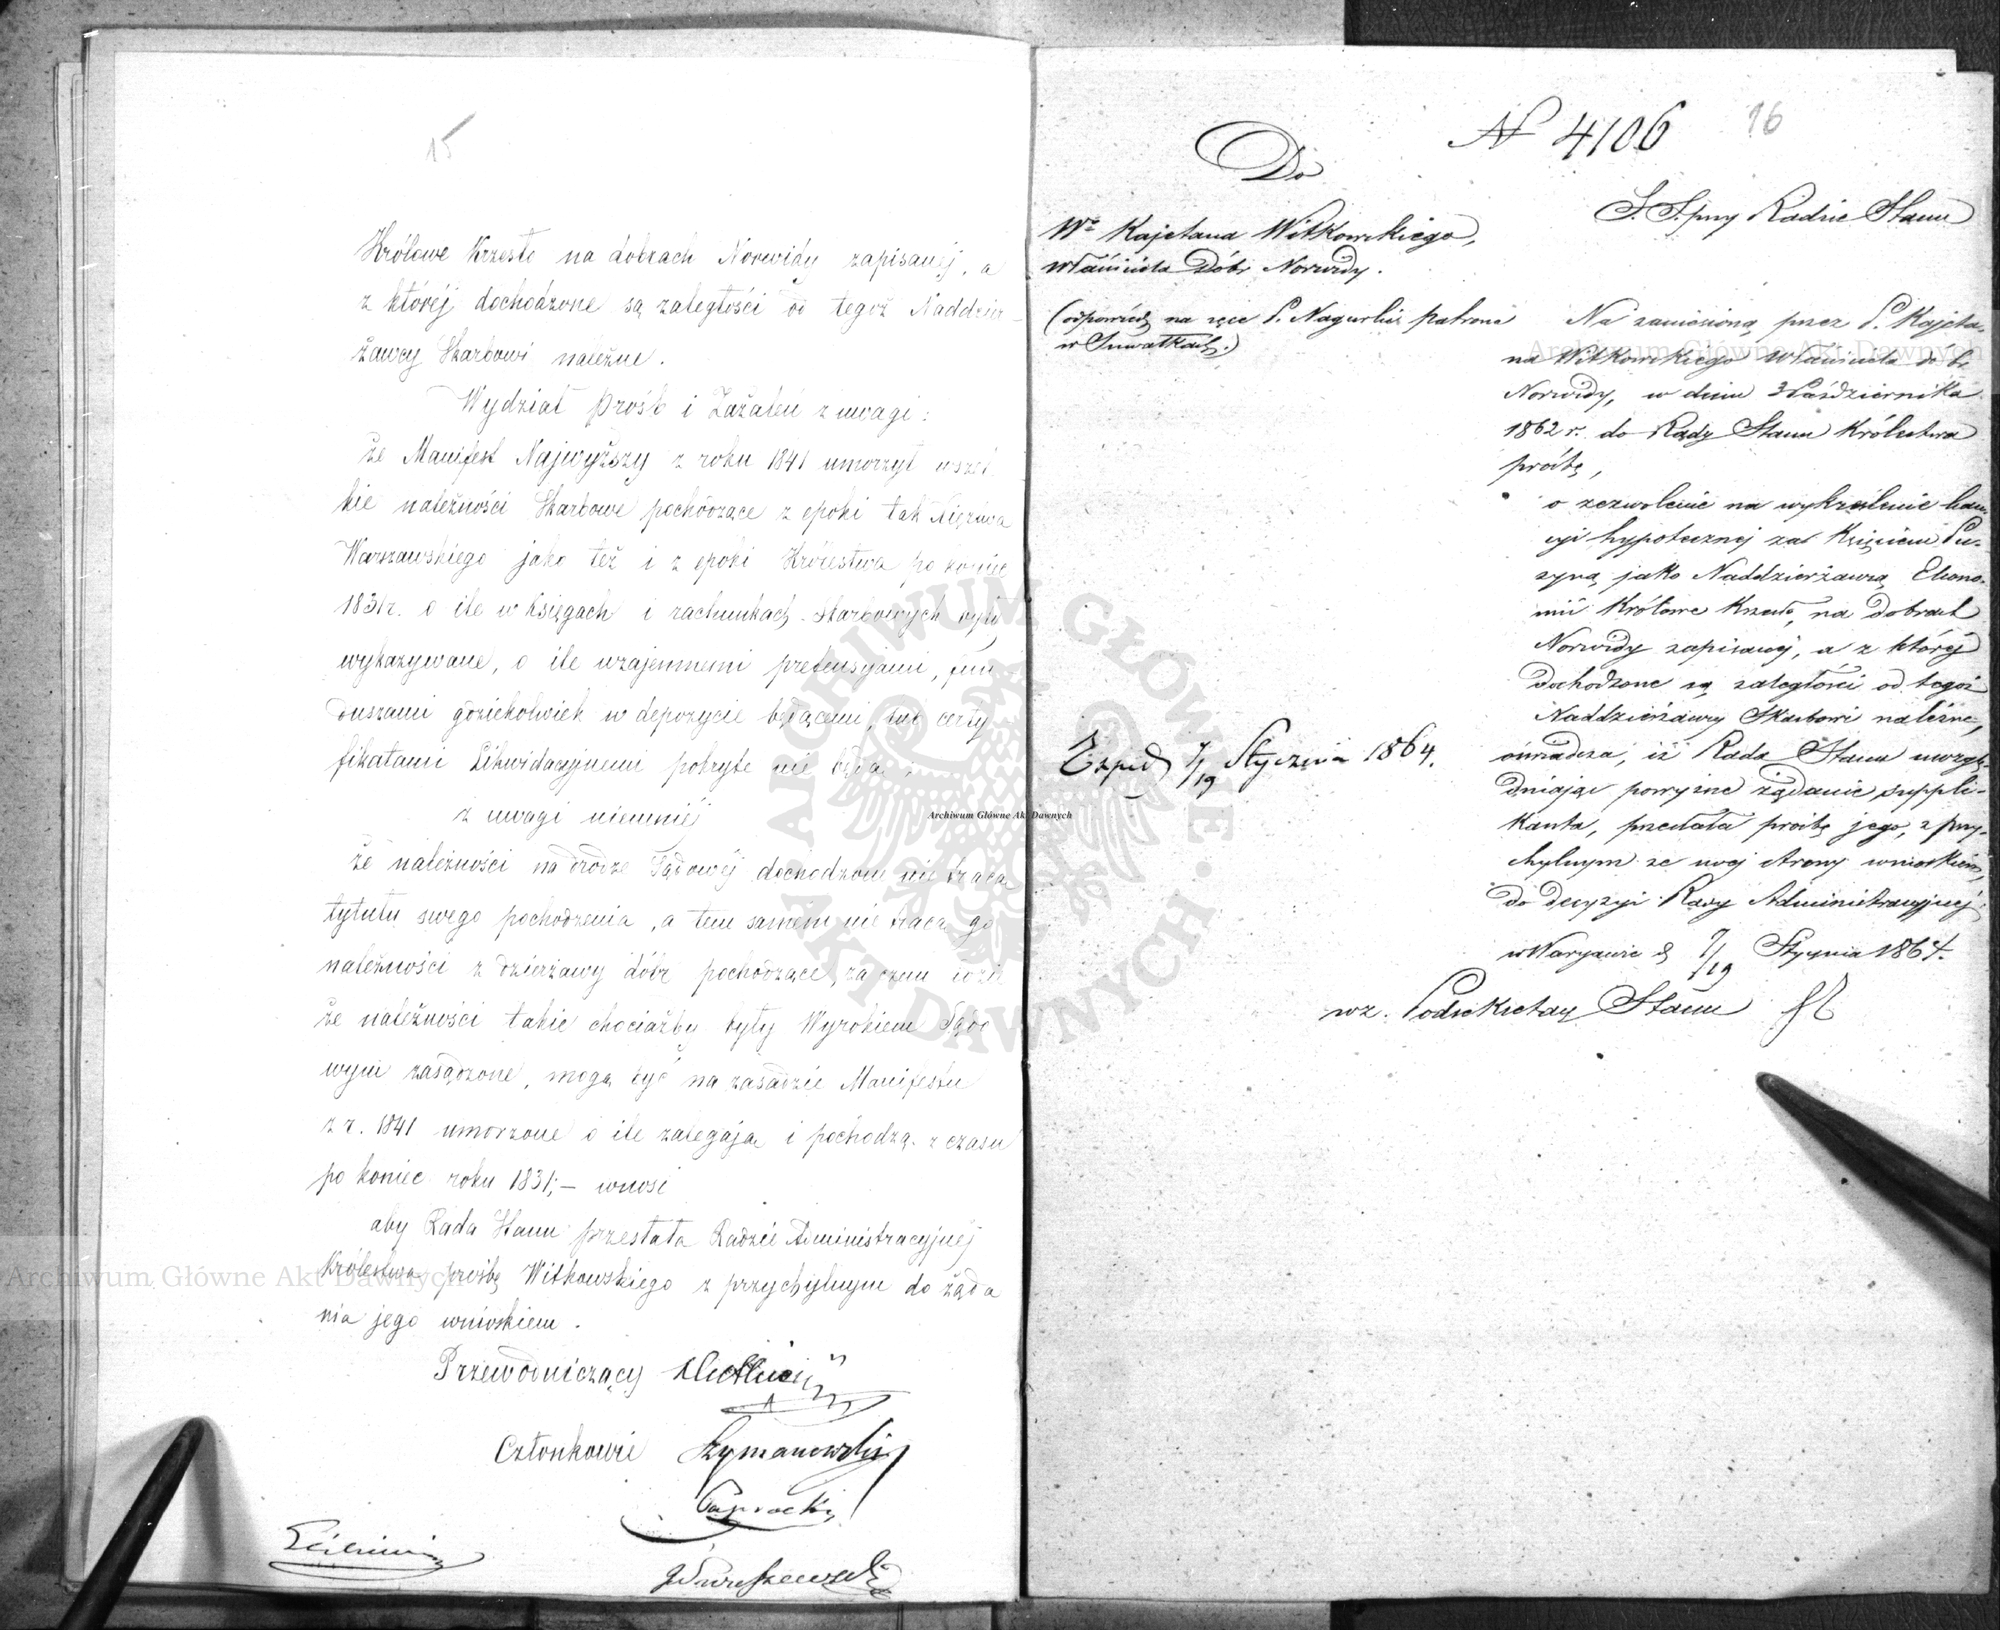 15
Królowe Krzesło na dobrach Norwidy zapisanéj, a
z któréj dochodzone są zaległości od tegoż Naddzier-
żawcy Skarbowi należne.
Wydział Prośb i Zażaleń z uwagi:
że Manifest Najwyższy z roku 1841 umorzył wszel-
kie należności Skarbowe pochodzące z epoki tak Księztwa
Warszawskiego jako też i z epoki Królestwa po koniec
1831 r. o ile w księgach i rachunkach Skarbowych były
wykazywane, o ile wzajemnemi pretensyjami, fun-
duszami gdziekolwiek w depozycie będącemi, lub certy-
fikatami Likwidacyjnemi pokryte nie będą;
z uwagi niemniéj
że należności na drodze Sądowéj dochodzone nie tracą
tytułu swego pochodzenia, a tem samem nie tracą go
należności z dzierżawy dóbr pochodzące, zaczem idzie
że należności takie chociażby były Wyrokiem Sądo-
wym zasądzone, mogą być na zasadzie Manifestu
z r. 1841 umorzone o ile zalegają i pochodzą z czasu
po koniec roku 1831; – wnosi
aby Rada Stanu przesłała Radzie Administracyjnéj
Królestwa prośbę Witkowskiego z przychylnym do żąda
nia jego wnioskiem.
Przewodniczący
Członkowie Szymanowski
Paprocki
No 4106 16
Do
S. S. przy Radzie Stanu
Wo Kajetana Witkowskiego,
właściciela Dóbr Norwidy.
(odpowiedź na ręce P. Nagurki patrona
w Suwałkach.)
Na zaniesioną przez P. Kajeta-
na Witkowskiego właściciela dóbr
Norwidy, w dniu 3 Października
1862 r. do Rady Stanu Królestwa
prośbę,
o zezwolenie na wykreślenie kau-
cyi hypotecznej za Księciem Pu-
zyną jako Naddzierżawcą Ekono-
mii Królowe Krzesło, na dobrach
Norwidy zapisanej, a z któréj
dochodzone są zaległości od tegoż
Naddzierżawcy Skarbowi należne,
oświadcza, iż Rada Stanu uwzglę-
dniając powyższe żądanie suppli-
kanta, przesłała prośbę jego, z przy-
chylnym ze swej strony wnioskiem,
do decyzyi Rady Administracyjnéj.
Exped 7/19 Stycznia 1864.
w Warszawie d 7/19 Stycznia 1864.
wz. Podsekretarz Stanu
Archiwum Główne Akt Dawnych
Archiwum Główne Akt Dawnych
Archiwum Główne Akt Dawnych
ARCHIWUM GŁÓWNE AKT DAWNYCH